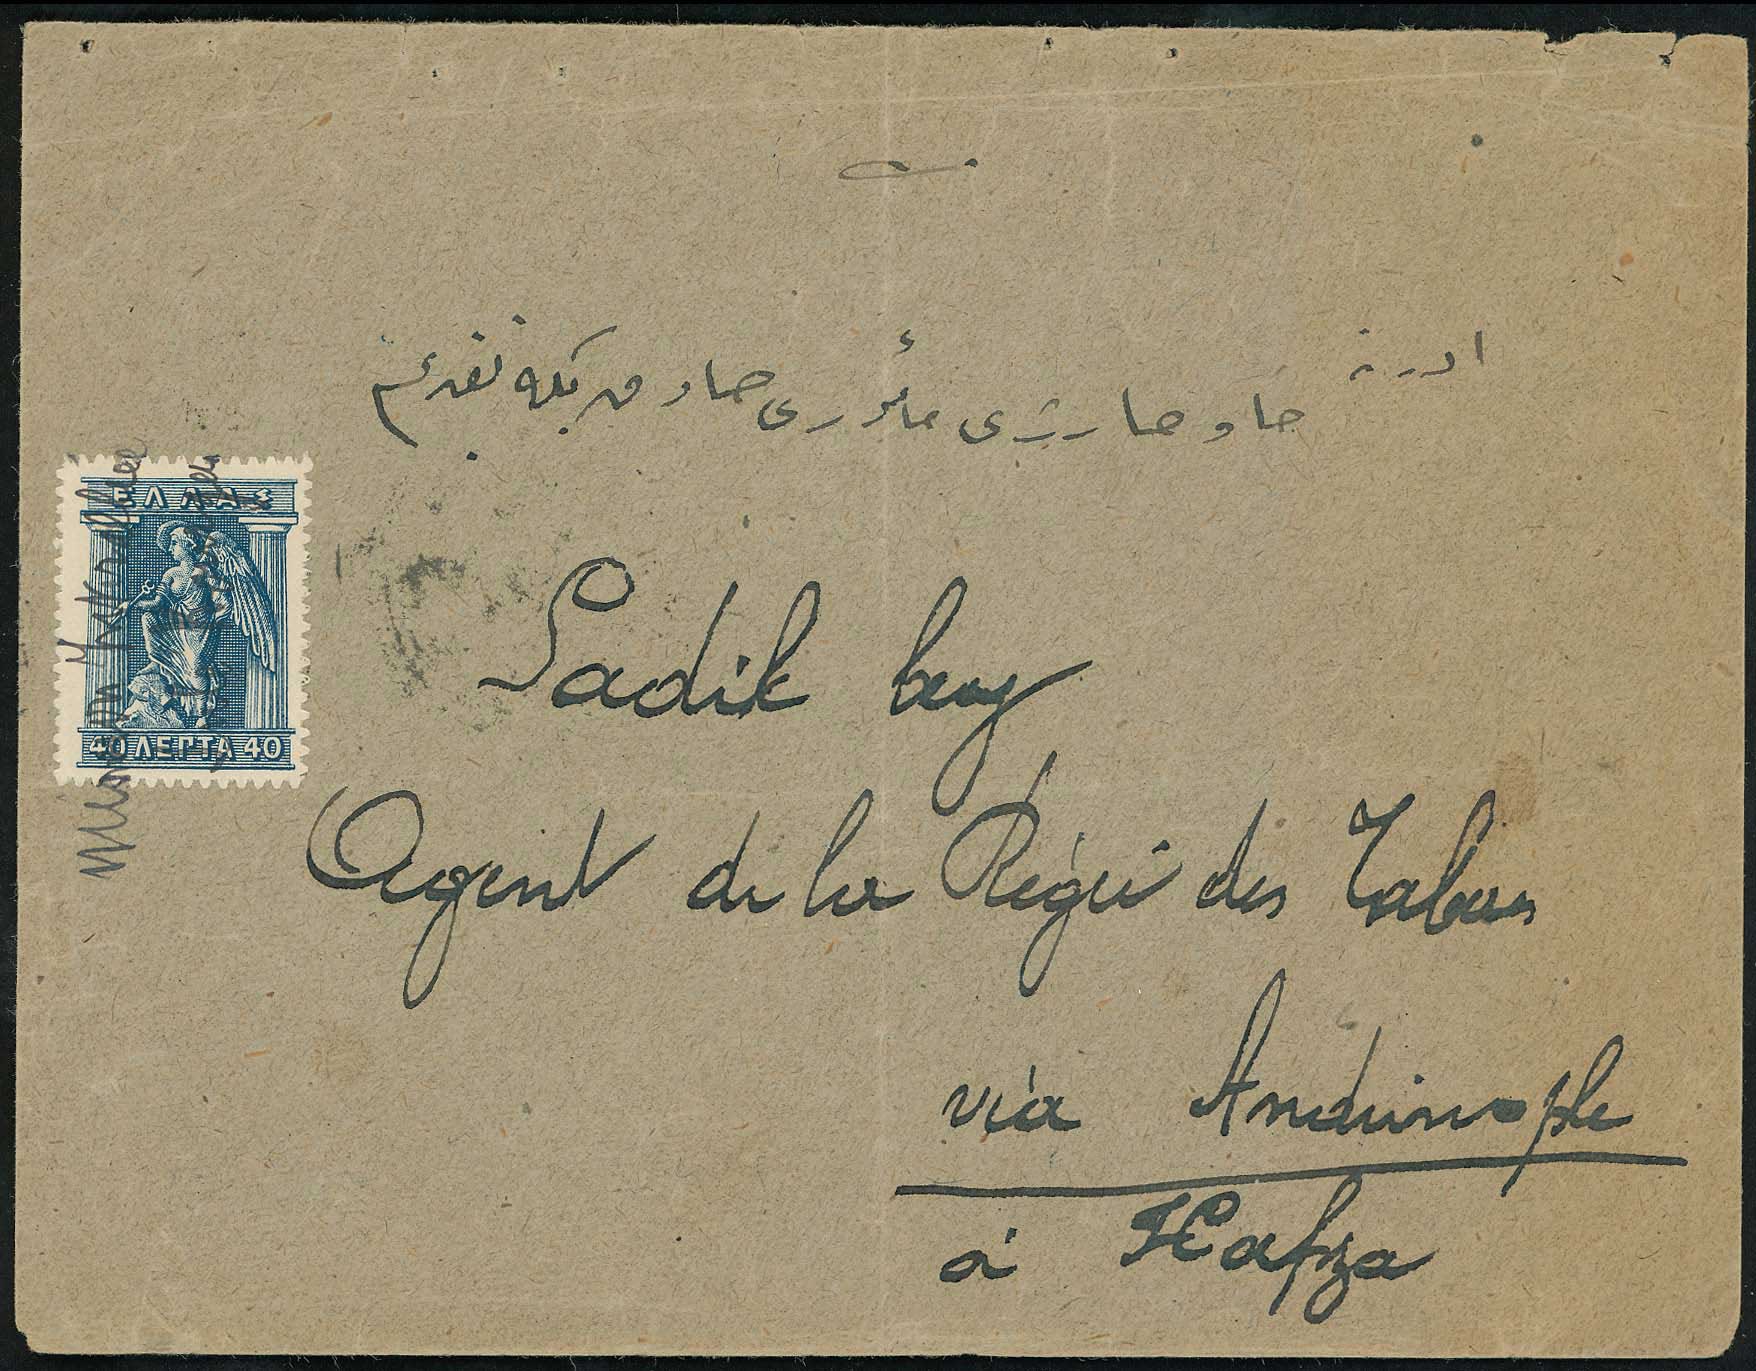 ادرنه
مأمورى صادق بكه تقديم
ΕΛΛΑΣ
40 ΛΕΠΤΑ 40
Sadik bey
Agent de la Régie des Tabacs
via Andrinople
à Hafza